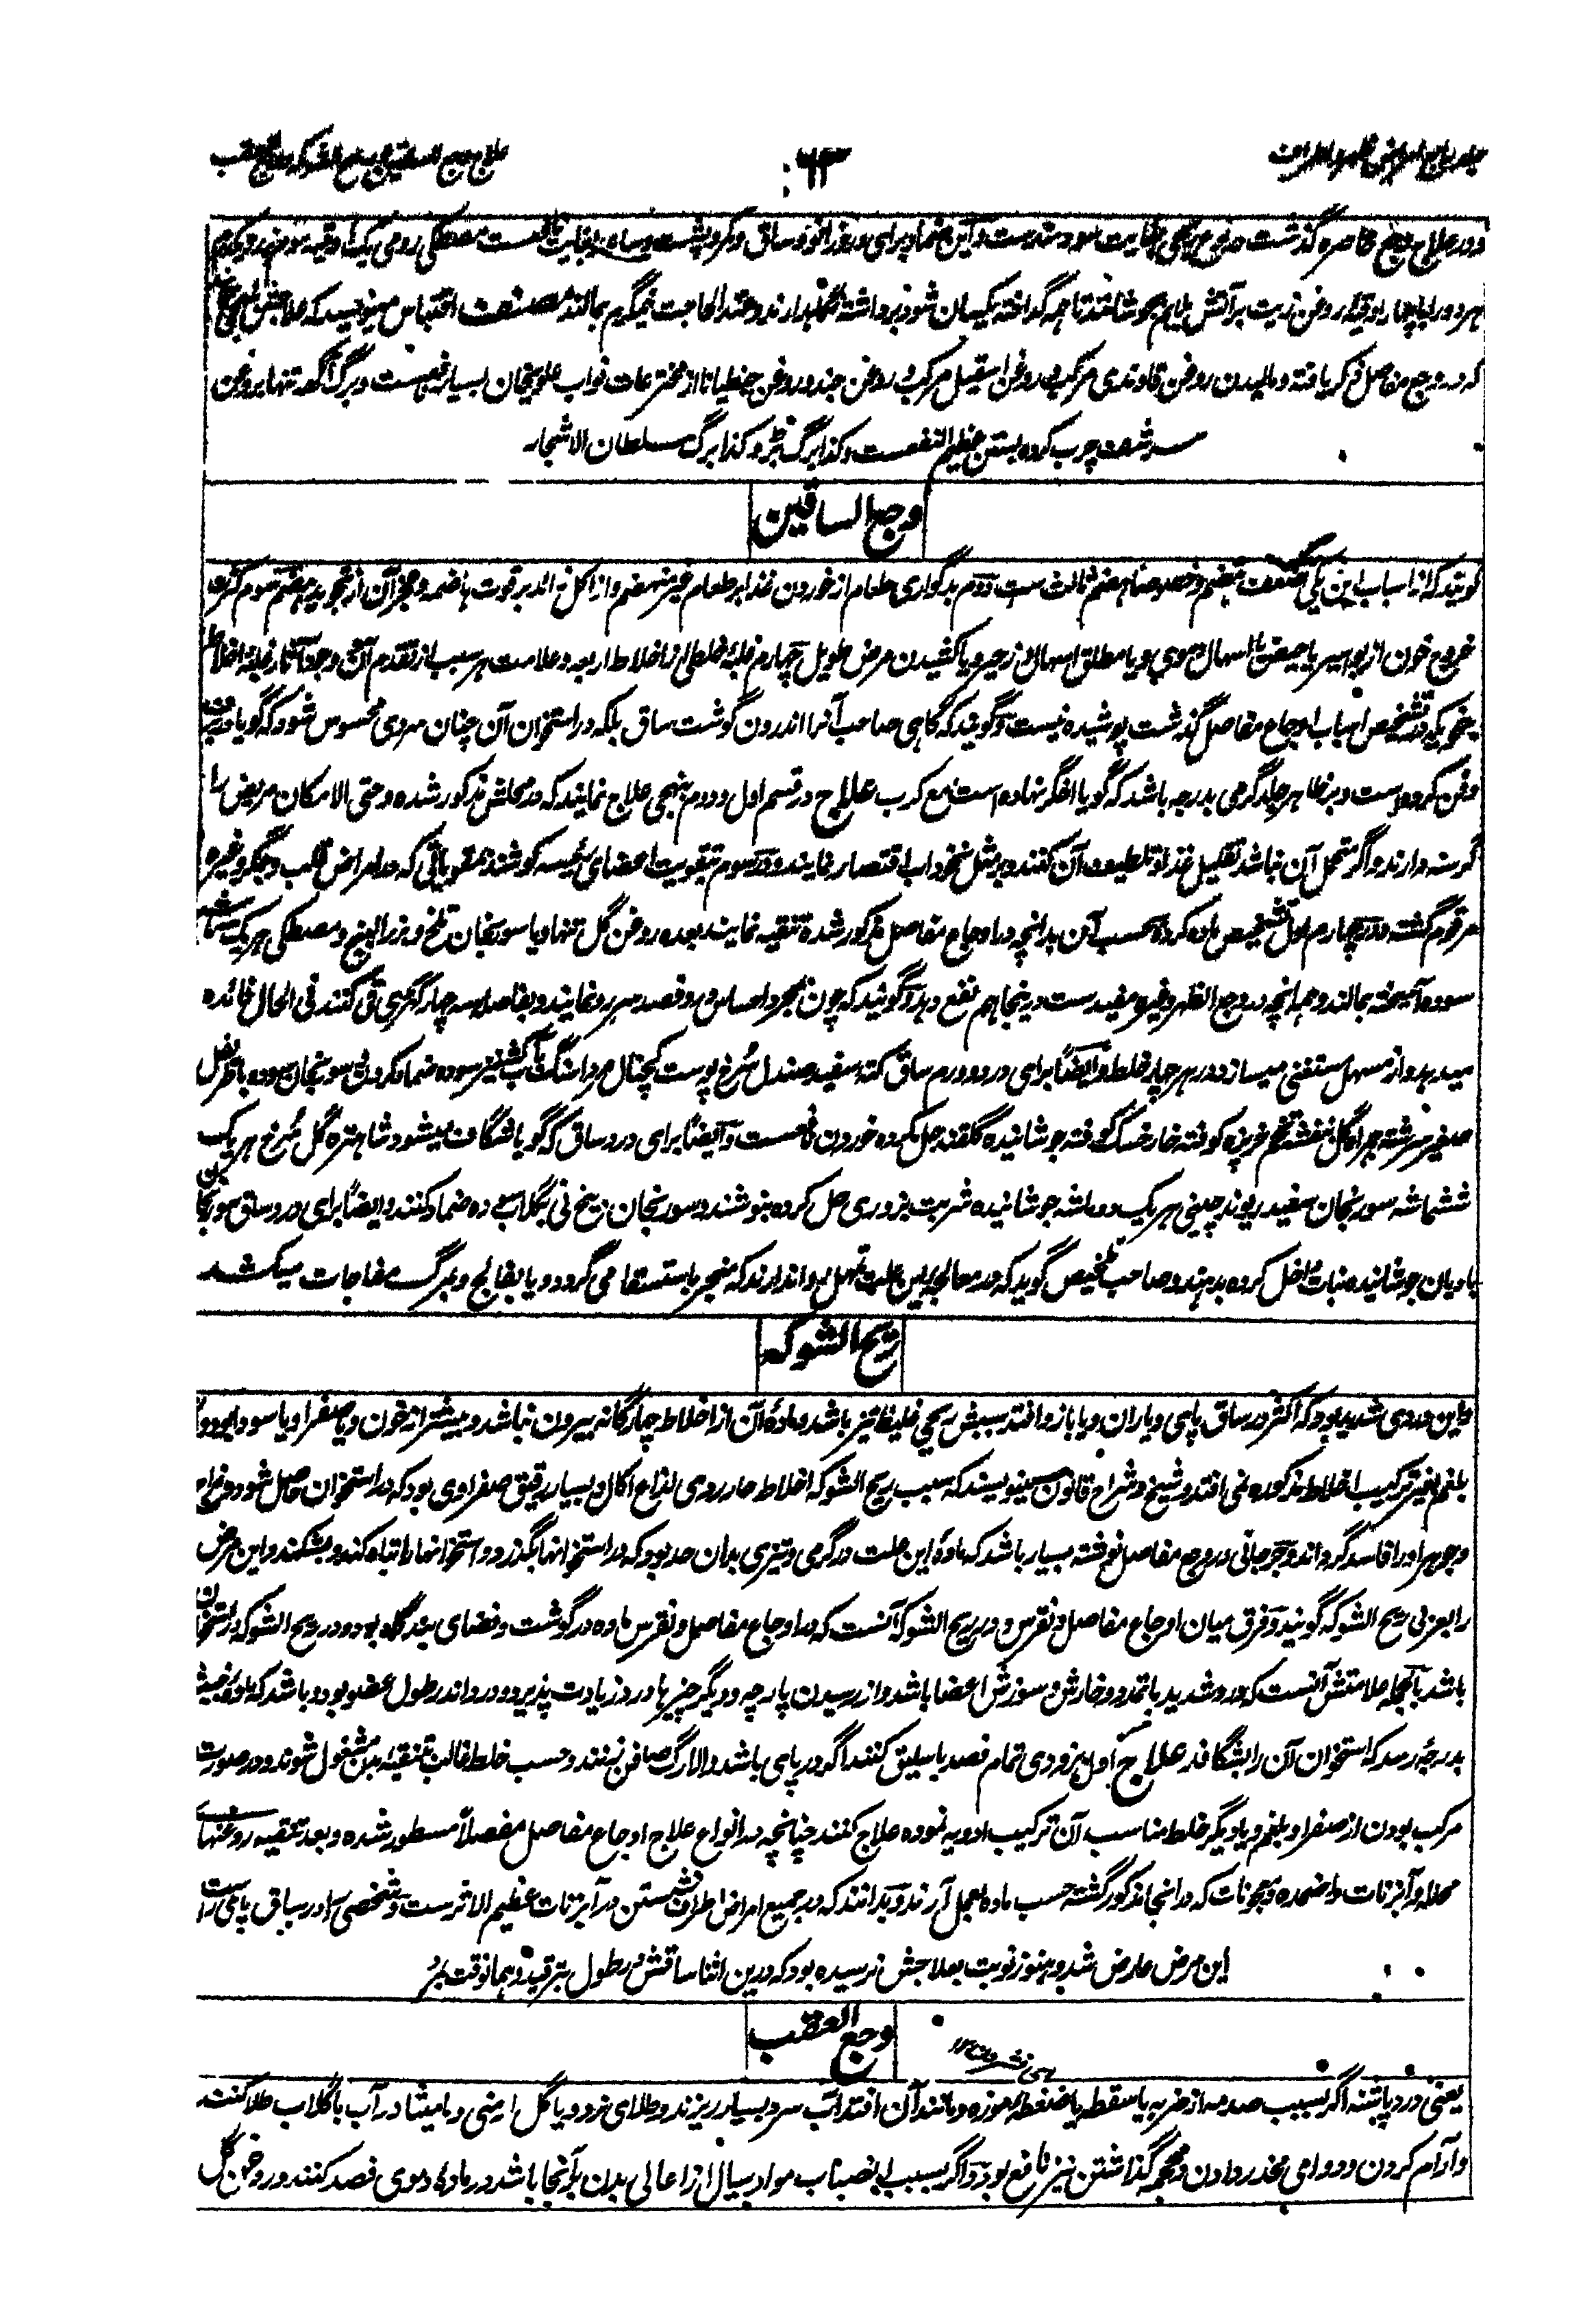 ۶۳
هر دو را با چهار اوقیه روغن زیت بر آتش ملایم بجوشانند تا همه گداخته یکسان شود برداشته نگهدارند و عند الحاجت نیمگرم بمالند مصنف اقتباس مینویسد که
که در وجع مفاصل ذکر یافته و مالیدن روغن قاوندی مرکب و روغن اسقیل مرکب و روغن جند و روغن جنطیانا از مخترعات نواب علویخان بسیار و برگ آگهه تنها بروغن
سرشف چرب کرده بستن عظیم النفعست و کذا برگ و کذا برگ سلطان الاشجار
وجع الساقین
گویند که از اسباب این یکی ضعف هضم و خصوصا هضم ثالث ست دوم بدگواری طعام از خوردن غذا بر طعام غیر منهضم و از اکل زائد بر قوت هاضمه و عجز آن از تجوید هضم سوم کثرت
خروج خون از بواسیر یا حیض یا اسهال دموی و یا مطلق اسهال و زحیر و یا کشیدن مرض طویل چهارم غلبه خلطی از اخلاط اربعه و علامت هر سبب از تقدم آن و وجود آثار غلبه اخلاط
بنحویکه در تشخیص اسباب اوجاع مفاصل گذشت پوشیده نیست و گویند که گاهی صاحب آنرا اندرون گوشت ساق بلکه در استخوان آن چنان سردی محسوس شود که گویا
دفن کرده است و بر ظاهر جلد گرمی بدرجه باشد که گویا اخگر نهاده است مع کرب علاج در قسم اول و دوم بنهجی علاج نمایند که در محلش مذکور شده و حتی الامکان مریض را
گرسنه دارند و اگر متحمل آن نباشد تقلیل غذا و تلطیف آن کنند و بر مثل نخوداب اقتصار نمایند و در سوم بتقویت اعضای رئیسه کوشند بمقویاتی که در امراض قلب و جگر و غیره
مرقوم گشته و در چهارم اول تشخیص ماده کرده حسب آن بدانچه در اوجاع مفاصل مذکور شده تنقیه نمایند بعده روغن گل تنها و یا سورنجان تلخ و بزر البنج و مصطکی هر یک
سوده آمیخته بمالند و هر انچه در وجع الظهر و غیره مفیدست درینجا هم نفع دهد و گویند که چون بمجرد احساس درد فصد هر دو نمایند و بفاصله سه چهار گهری قی کنند فی الحال فائده
میدهد و از مسهل مستغنی میسازد در هر چهار خلط و ایضا برای درد و ورم ساق کته سفید صندل سرخ پوست کچنال مرداسنگ بآب کشنیز سوده ضماد کردن و سورنجان سوده باطریفل
صغیر سرشته همراه گل بنفشه تخم خرپزه کوفته خارخسک کوفته جوشانیده گلقند حل کرده خوردن نافعست و ایضا برای درد ساق که گویا شگافته میشود شاهتره گل سرخ هر یک
ششماشه سورنجان سفید ریوند چینی هر یک دو ماشه جوشانیده شربت بزوری حل کرده بنوشند و سورنجان زرنیخ نی بگلاب سوده ضماد کنند و ایضا برای درد ساق سورنجان
بادیان جوشانیده نبات داخل کرده بدهند و صاحب تلخیص گوید که در معالجه این علت تمهل روا ندارند که منجر باستسقا می گردد و یا بفالج و بمرگ مفاجات میکشد
ریح الشوکه
و این دردی شدید بود که اکثر در ساق پای و یا ران و یا بازو افتد سببش ریحی غلیظ تیز باشد و ماده آن از اخلاط چارگانه بیرون نباشد و بیشتر از خون و یا صفرا و یا سودا بود و از
بلغم بغیر ترکیب اخلاط مذکوره نمی افتد و شیخ و شراح قانون مینویسند که سبب ریح الشوکه اخلاط حاد ردی لذاع اکال و بسیار رقیق صفراوی بود که در استخوان حاصل شود و مزاج
و جوهر او را فاسد گرداند و جرجانی در وجع مفاصل نوشته بسیار باشد که ماده این علت در گرمی و تیزی بدان حد بود که در استخوانها بگذرد و استخوانها را تباه کند و بشکند و این مرض
را بعربی ریح الشوکه گویند و فرق میان اوجاع مفاصل و نقرس و در ریح الشوکه آنست که در اوجاع مفاصل و نقرس ماده در گوشت و فضای بندگاه بود و در ریح الشوکه در استخوان
باشد بالجمله علامتش آنست که درد شدید با تمدد و خارش و سوزش اعضا باشد و از رسیدن پارچه و دیگر چیزها درد زیادت پذیرد و درد اندر طول عضو بود و باشد که ماده خبیث
بدرجه رسد که استخوان آن را بشگافد علاج اول بزودی تمام فصد باسلیق کنند اگر در پای باشد و الا رگ صافن زنند و حسب خلط غالب بتنقیه بدن مشغول شوند و در صورت
مرکب بودن از صفرا و بلغم و یا دیگر خلط مناسب آن ترکیب ادویه نموده علاج کنند چنانچه در انواع علاج اوجاع مفاصل مفصلا مسطور شده و بعد تنقیه روغنهای
محلله و آبزنات و اضمده و معجونات که در انجا مذکور گشته حسب ماده بعمل آرند و بدانند که در جمیع امراض اطراف نشستن در آبزنات عظیم الاثرست و شخصی را در ساق پای راست
این مرض عارض شد و هنوز نوبت بعلاجش نرسیده بود که درین اثنا ساقش در طول بترقید و همانوقت بمرد
وجع العقب
یعنی درد پاشنه اگر بسبب صدمه از ضربه یا سقطه یا ضغطه موزه و مانند آن افتد آب سرد بسیار ریزند و طلای زرد و یا گل ارمنی و مامیثا در آب یا گلاب طلا کنند
و آرام کردن و دوای مخدر دادن و محجمه گذاشتن نیز نافع بود و اگر بسبب انصباب مواد سیال از اعالی بدن بآنجا باشد در ماده دموی فصد کنند و روغن گل